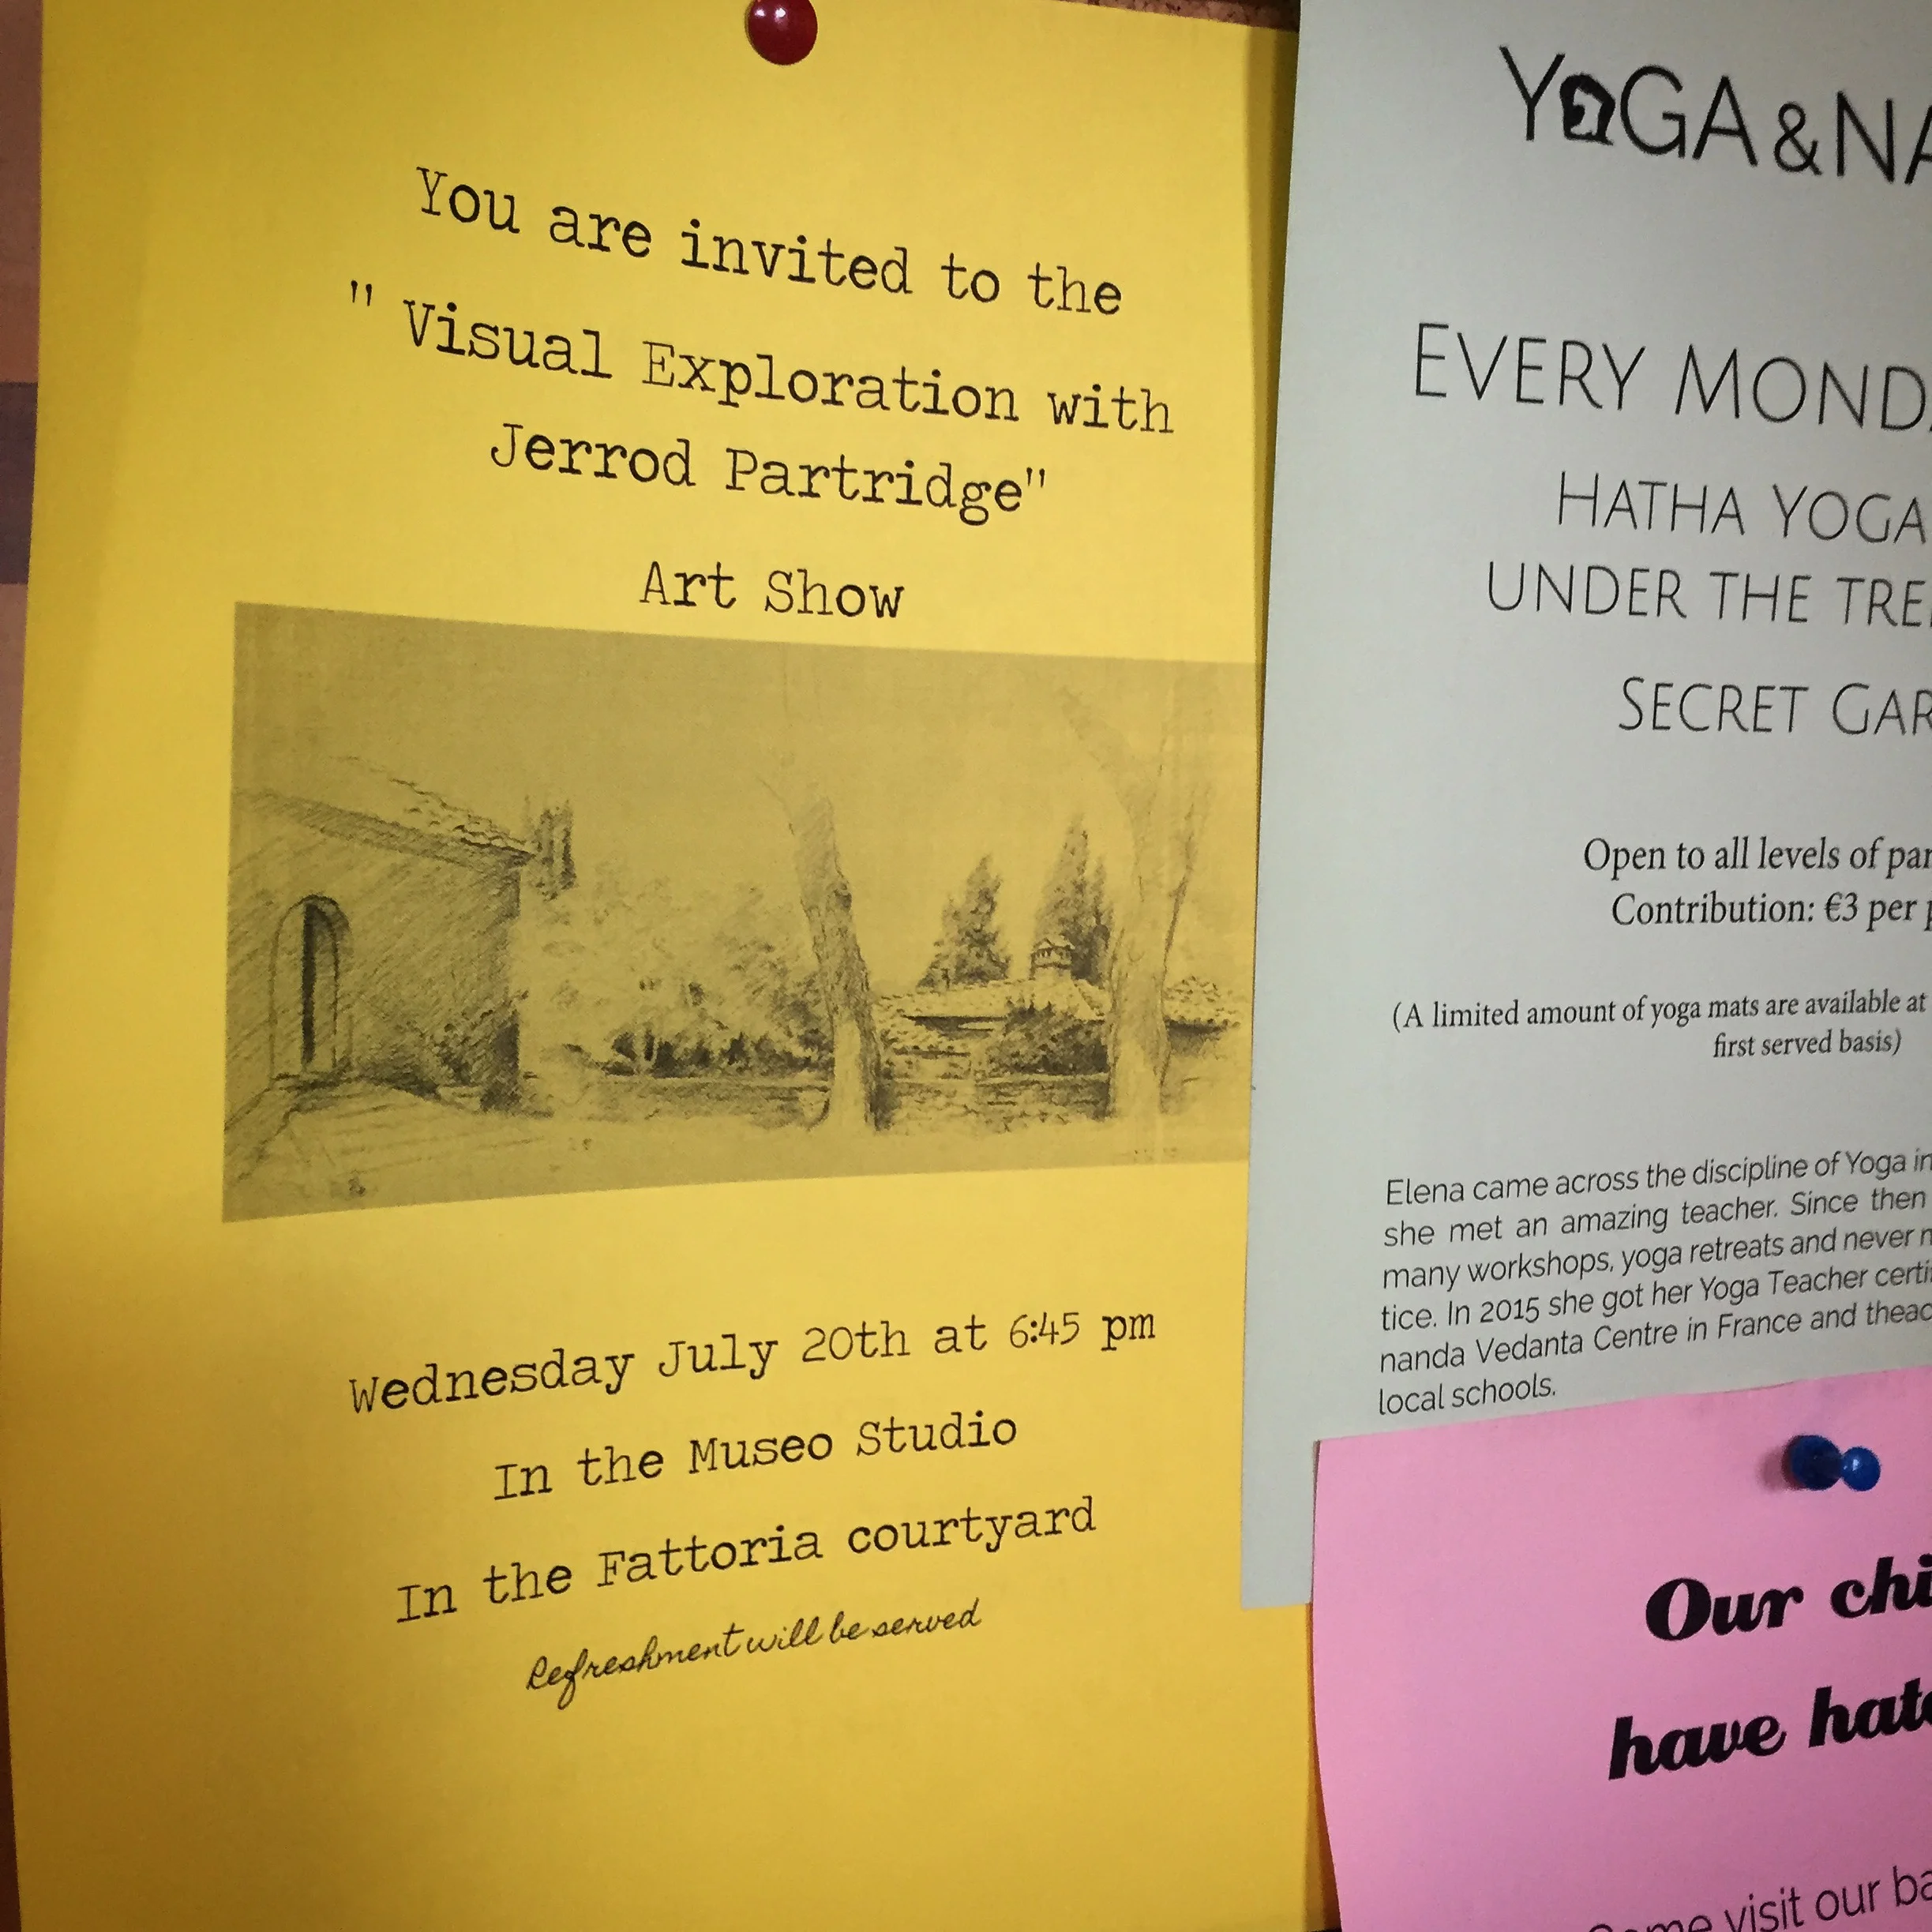 You are invited to the
" Visual Exploration with
Jerrod Partridge"
Art Show
Wednesday July 20th at 6:45 pm
In the Museo Studio
In the Fattoria courtyard
Refreshment will be served
YOGA & NA
EVERY MONDA
HATHA YOGA
UNDER THE TREE
SECRET GAR
Open to all levels of par
Contribution: €3 per p
(A limited amount of yoga mats are available at
first served basis)
Elena came across the discipline of Yoga in
she met an amazing teacher. Since then
many workshops, yoga retreats and never m
tice. In 2015 she got her Yoga Teacher certi
nanda Vedanta Centre in France and theac
local schools.
Our chi
have hatc
Come visit our ba